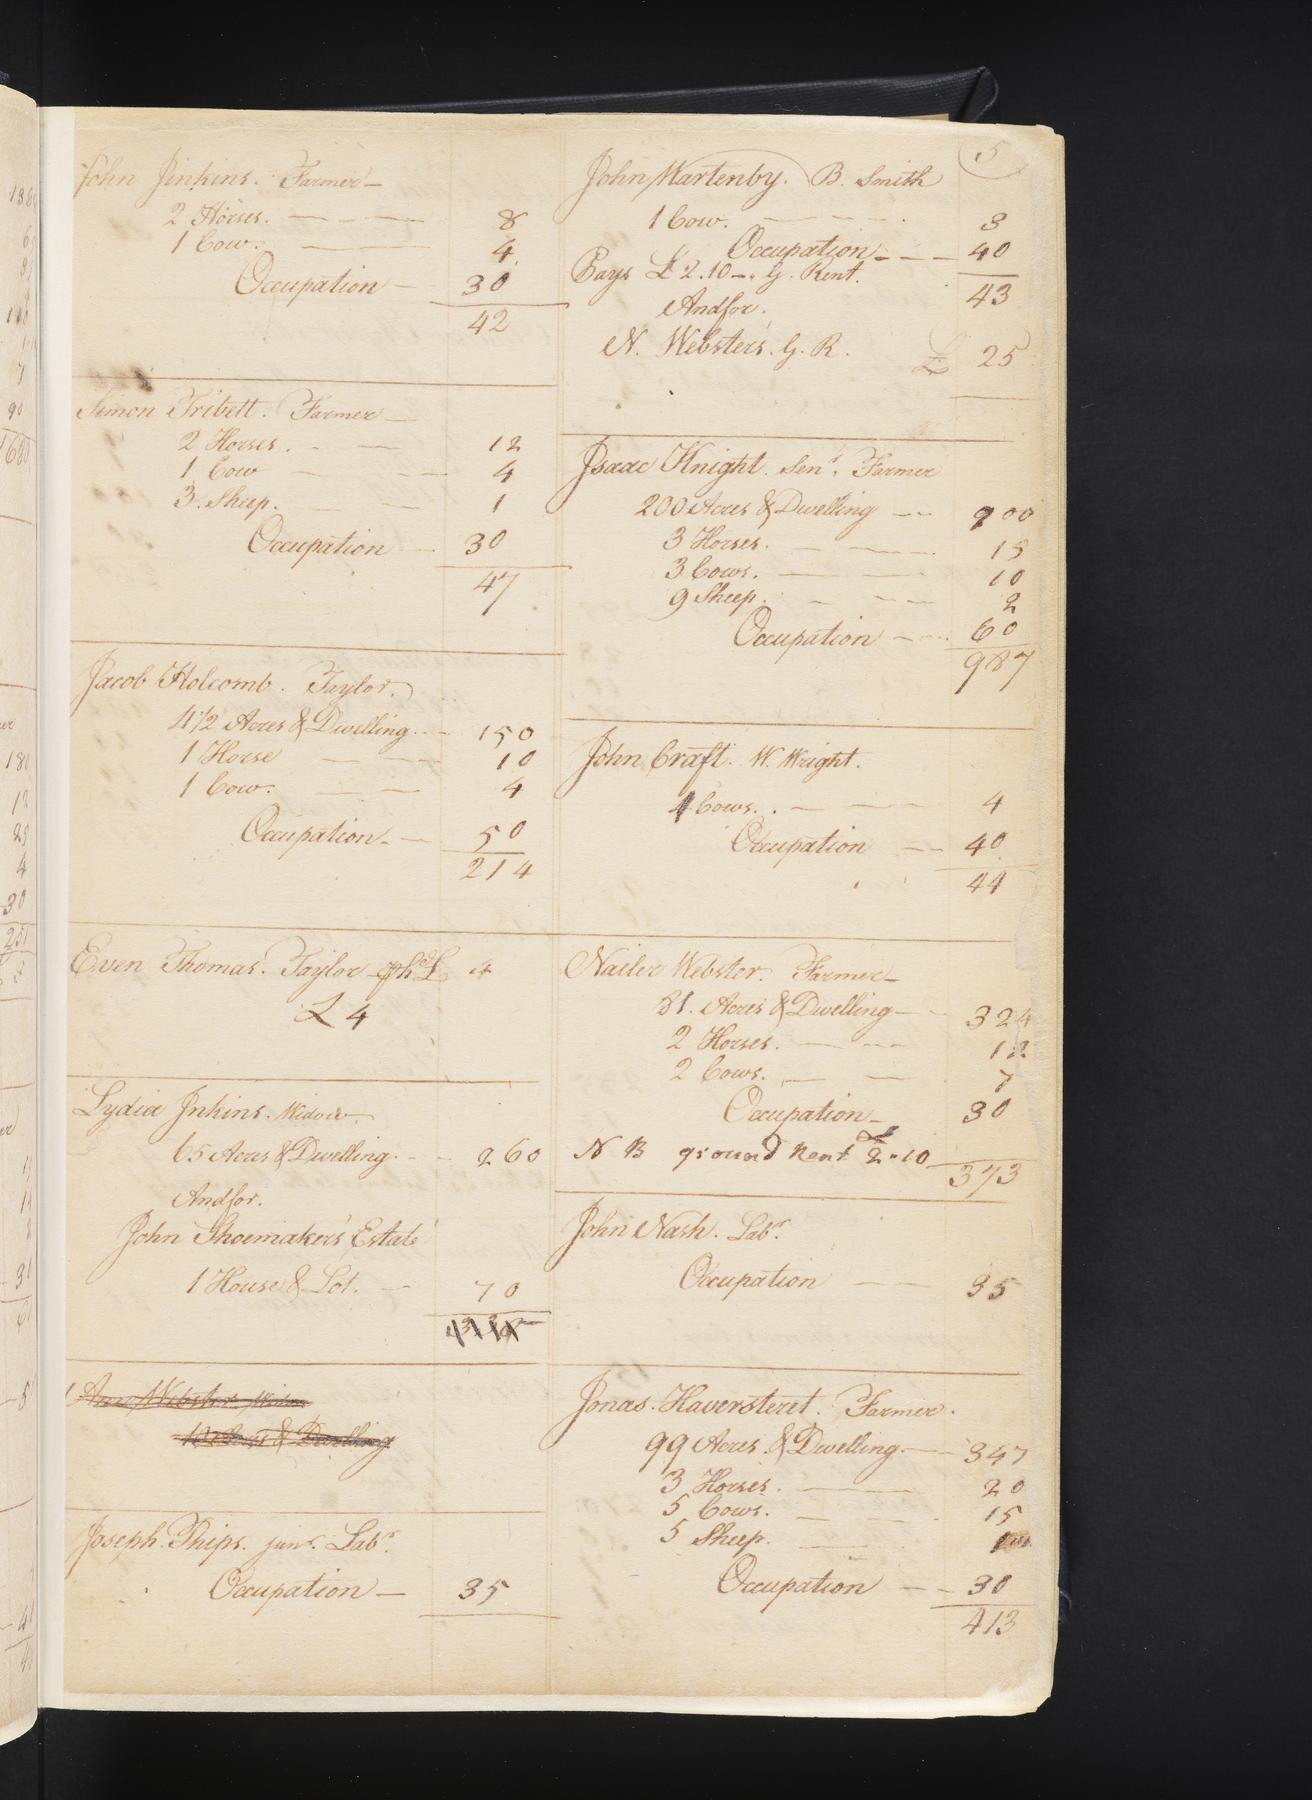 John Jinkins. Farmer
2 Horses. 8
1 Cow. 4
Occupation 30
42
Simon Tribett. Farmer
2 Horses. 12
1 Cow 4
3 Sheep. 1
Occupation 30
47
Jacob Holcomb. Taylor.
4 1/2 Acres & Dwelling 150
1 Horse 10
1 Cow. 4
Occupation 50
214
Even Thomas. Taylor 4
£ 4
Lydia Jnkins. Widow
65 Acres & Dwelling 260
And for.
John Shoemakers Estate
1 House & Lot. 70
Ann Webster. Widow
Acres & Dwelling
Joseph. Phips. junr. Labr.
Occupation 35
5
John Martenby. B. Smith
1 Cow. 3
Occupation 40
Pays £ 2.10 G. Rent. 43
And for.
N. Webster's. G. R. £ 25
Isaac Knight. Senr. Farmer
200 Acres & Dwelling 900
3 Horses. 15
3 Cows. 10
9 Sheep. 2
Occupation 60
987
John Craft. W. Wright.
1 Cows. 4
Occupation 40
44
Nailer Webster. Farmer
81. Acres & Dwelling 324
2 Horses. 12
2 Cows. 7
Occupation 30
N B ground Rent £ 2.10 373
John Nash. Labr.
Occupation 35
Jonas. Haversteret. Farmer.
99 Acres. & Dwelling 347
3 Horses. 20
5 Cows. 15
5 Sheep. 1
Occupation 30
413